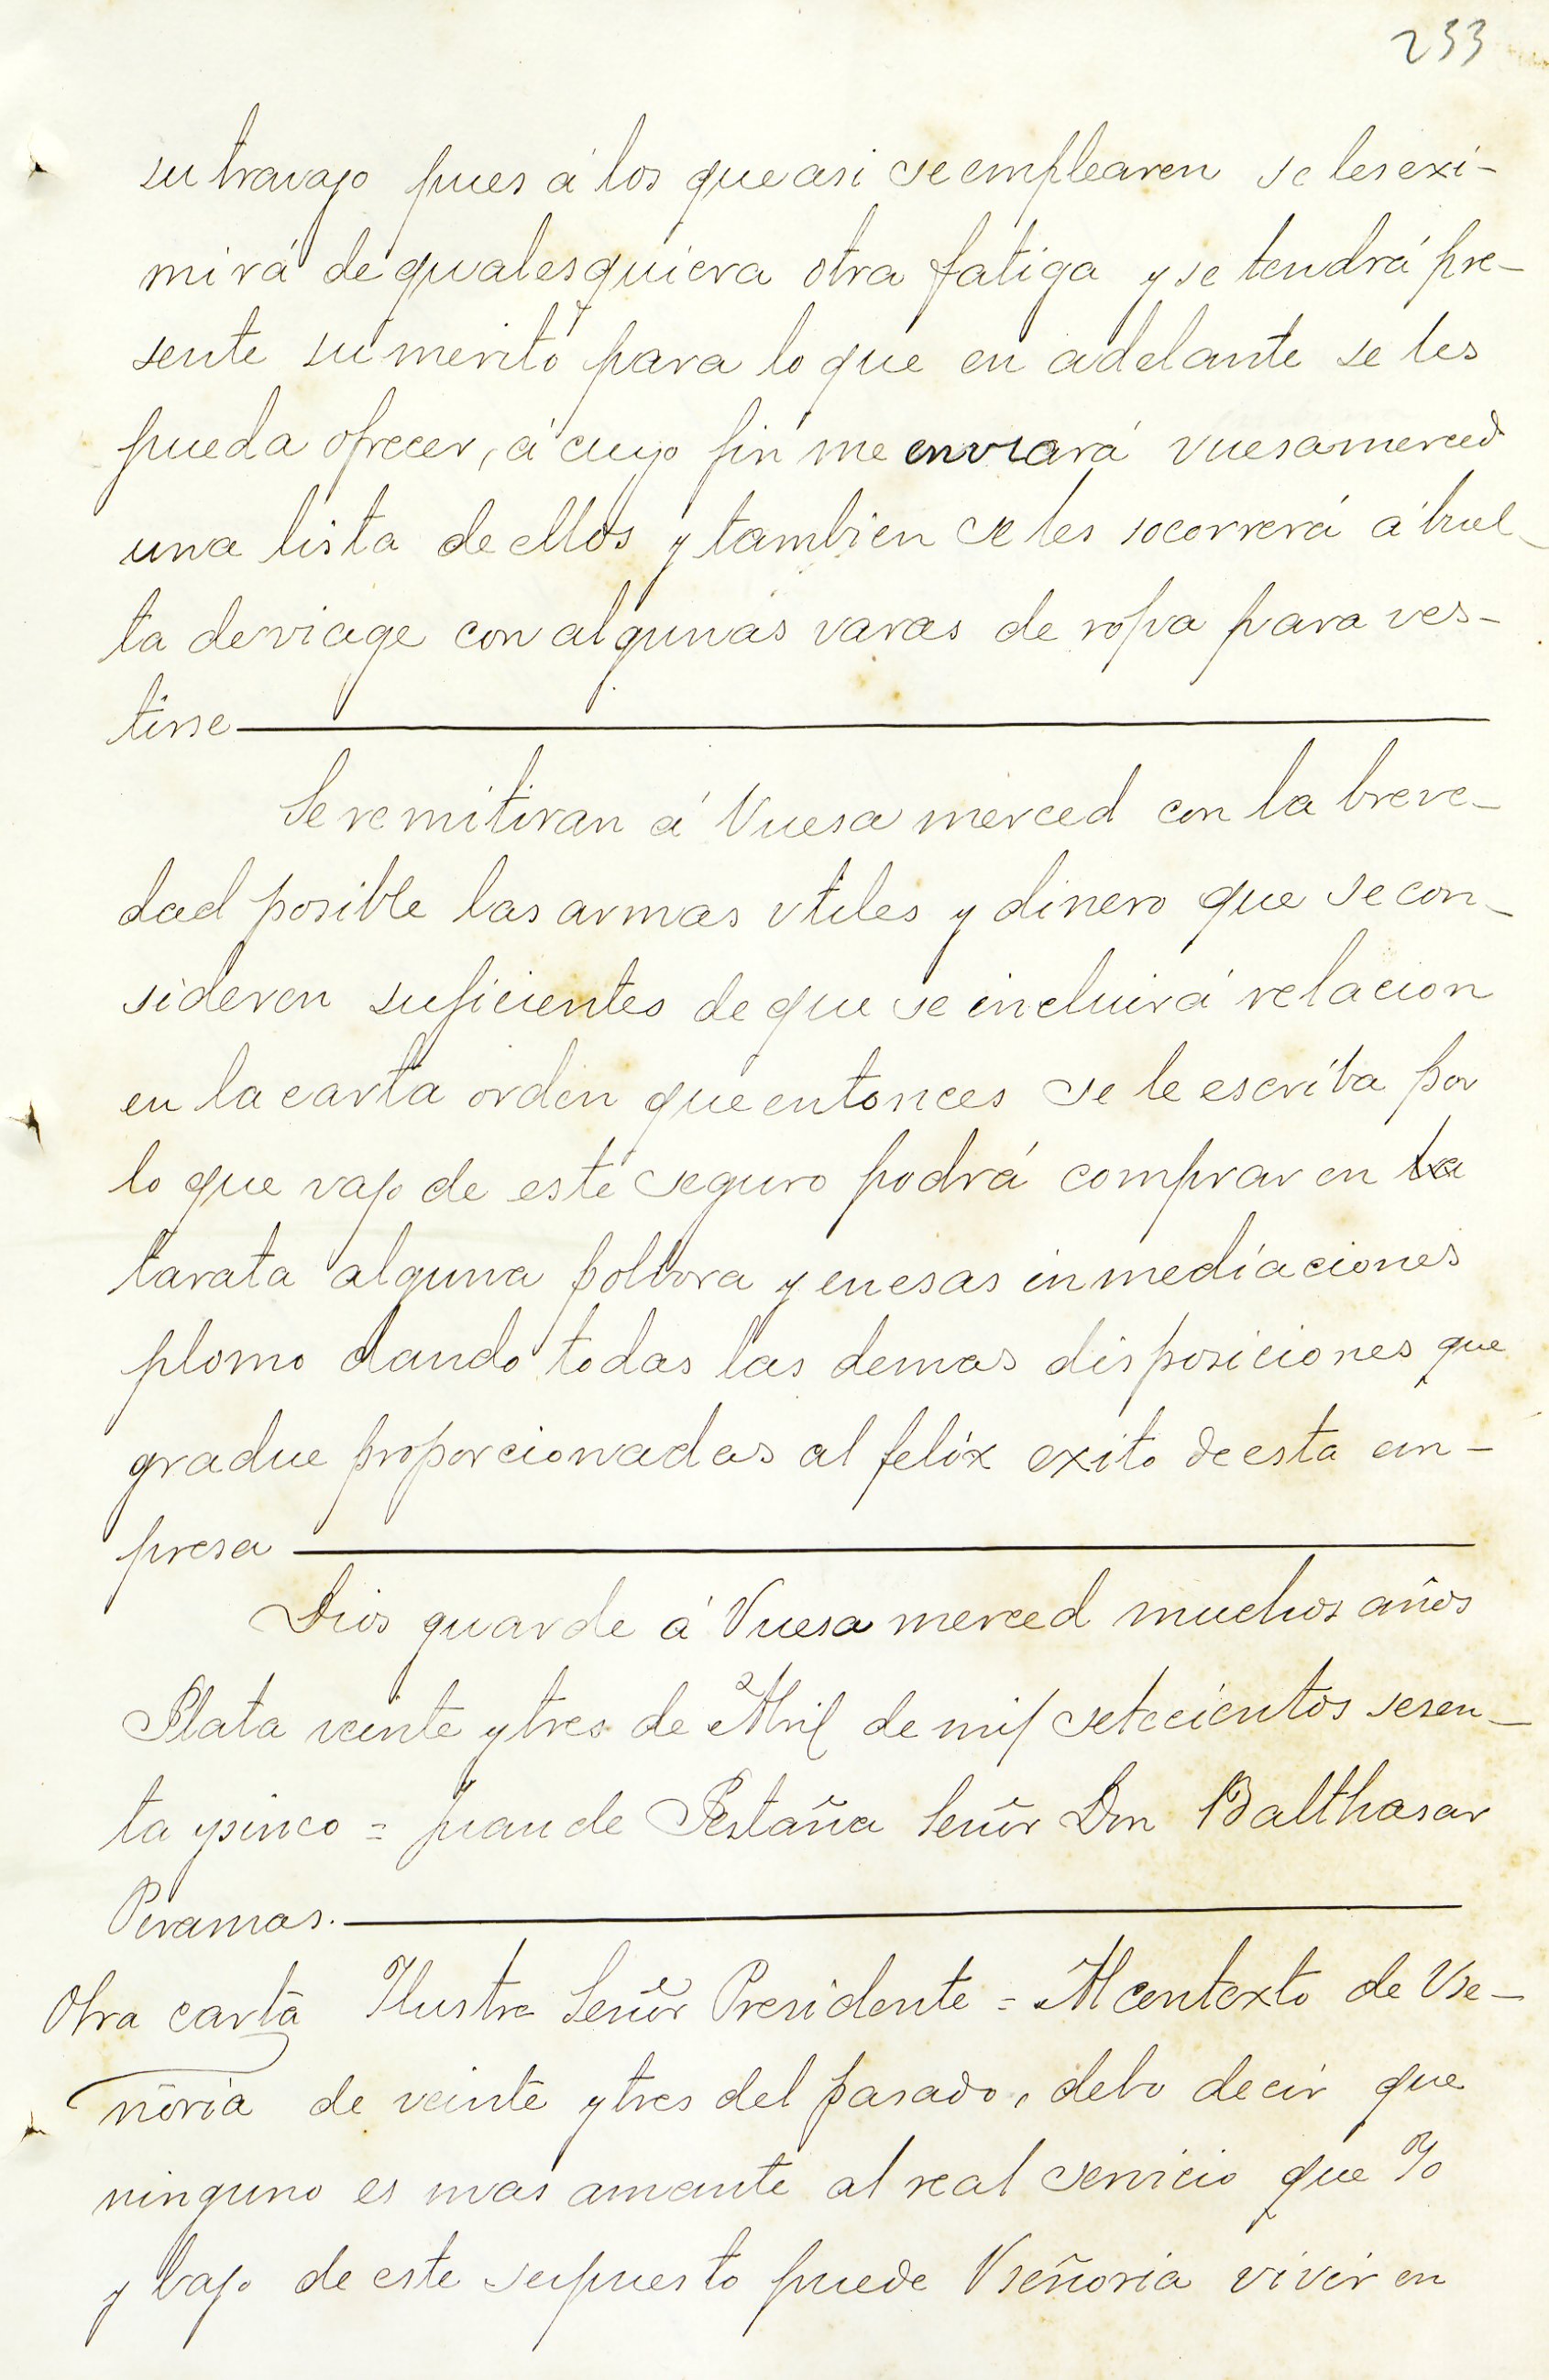 233
su travajo pues á los que asi se emplearen se les exi-
mirá de qualesquiera otra fatiga y se tendrá pre-
sente su merito para lo que en adelante se les
pueda ofrecer, á cuyo fin me enviará vuesamerced
una lista de ellos y tambien se les socorrerá á buel-
ta de viage con algunas varas de ropa para ves-
tirse
Se remitiran á Vuesa merced con la breve-
dad posible las armas vtiles y dinero que se con-
sideren suficientes de que se incluirá relacion
en la carta orden que entonces se le escriba por
lo que vajo de este seguro podrá comprar en la
tarata alguna polvora y en esas inmediaciones
plomo dando todas las demas disposiciones que
gradue proporcionadas al felix exito de esta em-
presa
Dios guarde á Vuesa merced muchos años
Plata veinte y tres de Abril de mil setecientos sesen-
ta y sinco = Juan de Pestaña Señor Don Balthasar
Peramas.
Otra carta Ilustre Señor Presidente = Al contexto de Vse-
ñoria de veinte y tres del pasado, debo decir que
ninguno es mas amante al real servicio que Yo
y bajo de este supuesto puede Vseñoria vivir en